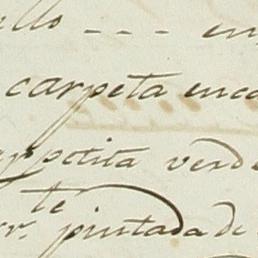 llo - - - en
carpeta enca
arpetita verde
te
r. pintada de